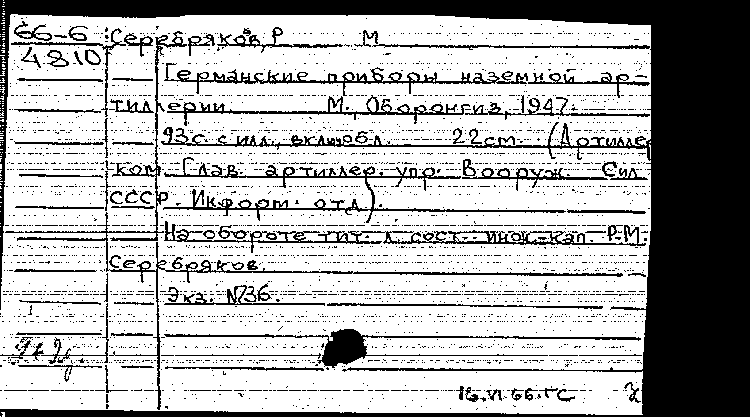 66-6
4810
Серебряков, Р М
Германские приборы наземной ар-
тиллерии. М., Оборонгиз, 1947.
93с. с илл., включ. обл. 22cm. (Артиллер
ком. Глав. артиллер. упр. Вооруж. Сил
СССР. Информ. отд).
На обороте тит. л. сост.: инж.-кап. Р.М.
Серебряков.
Экз. №736.
16.VI 66. ГС